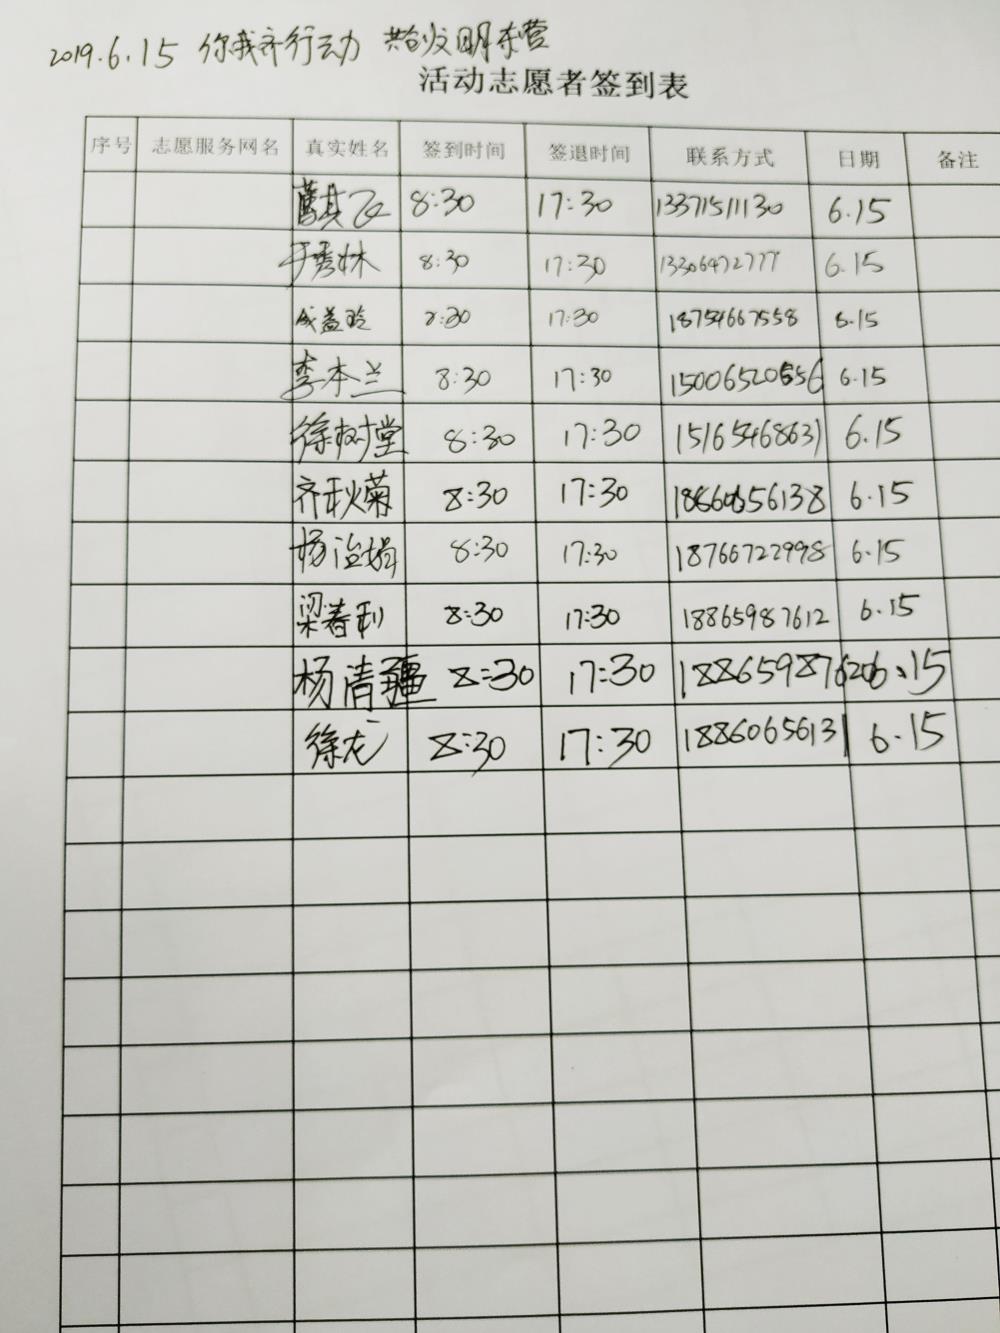 2019.6.15 你我齐行动 共创文明东营
活动志愿者签到表
序号 志愿服务网名 真实姓名 签到时间 签退时间 联系方式 日期 备注
8:30 17:30 13371511130 6.15
于秀林 8:30 17:30 13306472777 6.15
成益玲 8:30 17:30 18754667558 6.15
李本兰 8:30 17:30 6.15
徐树堂 8:30 17:30 15165468631 6.15
齐秋菊 8:30 17:30 6.15
杨治娟 8:30 17:30 18766722998 6.15
梁春利 8:30 17:30 18865987612 6.15
杨清疆 8:30 17:30 18865987620 6.15
徐龙 8:30 17:30 18860656131 6.15